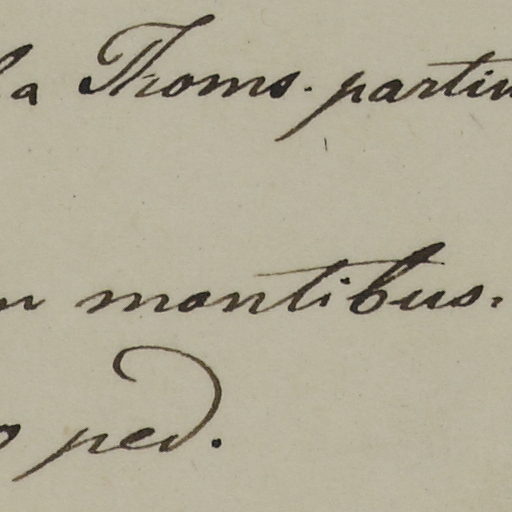 la Thoms. partim
n montibus.
0 ped.